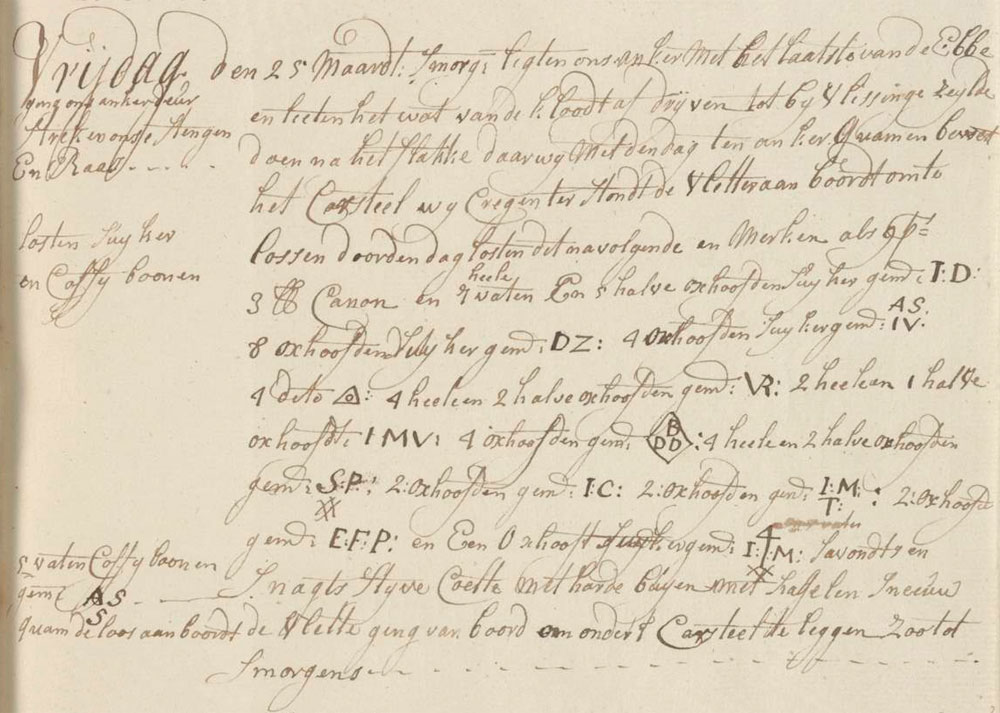 Vrijdag den 25 Maardt: Smorg: ligten ons anker met het laatste van de Ebbe
ging ons anker deur
en lieten het wat van de k loodt af drijven tot by Vlissinge zeylde
streken onse stengen
doen na het slakke daar wy met den dag ten anker Quamen
En Raas - - - -
het Casteel wy Cregen ter stondt de Vletter aan boordt om te
losten suyker
lossen doorden dag losten det navolgende en Merken als
en Coffy boonen
heele
3 Canon en 7 vaten En 5 halve oxhoofden Suyker gemd: I:D:
8 oxhoofden Suyker gemd: DZ: 4 oxhoofden Suyker gemd: AS. IV:
4 deto : 4 heele en 2 halve oxhoofden gemd: VR: 2 heele en 1 halve
oxhoofdt: IMV: 4 oxhoofden gemd: B DD : 4 heele en 2 halve oxhoofden
gemd: S:P: 2: oxhoofden gemd: I:C: 2: oxhoofden gemd: I:M: T: : 2: oxhoofd
gemd: E:F:P: en Een Oxhooft suykergemd: I:4:M: Savondts en
5 vaten Coffy boonen
Snagts styve Coelte met harde buyen met hagel en sneeuw
gemt AS S
quam de loos aan boordt de Vlette ging van boord om onder t Casteel te leggen zoo tot
Smorgens